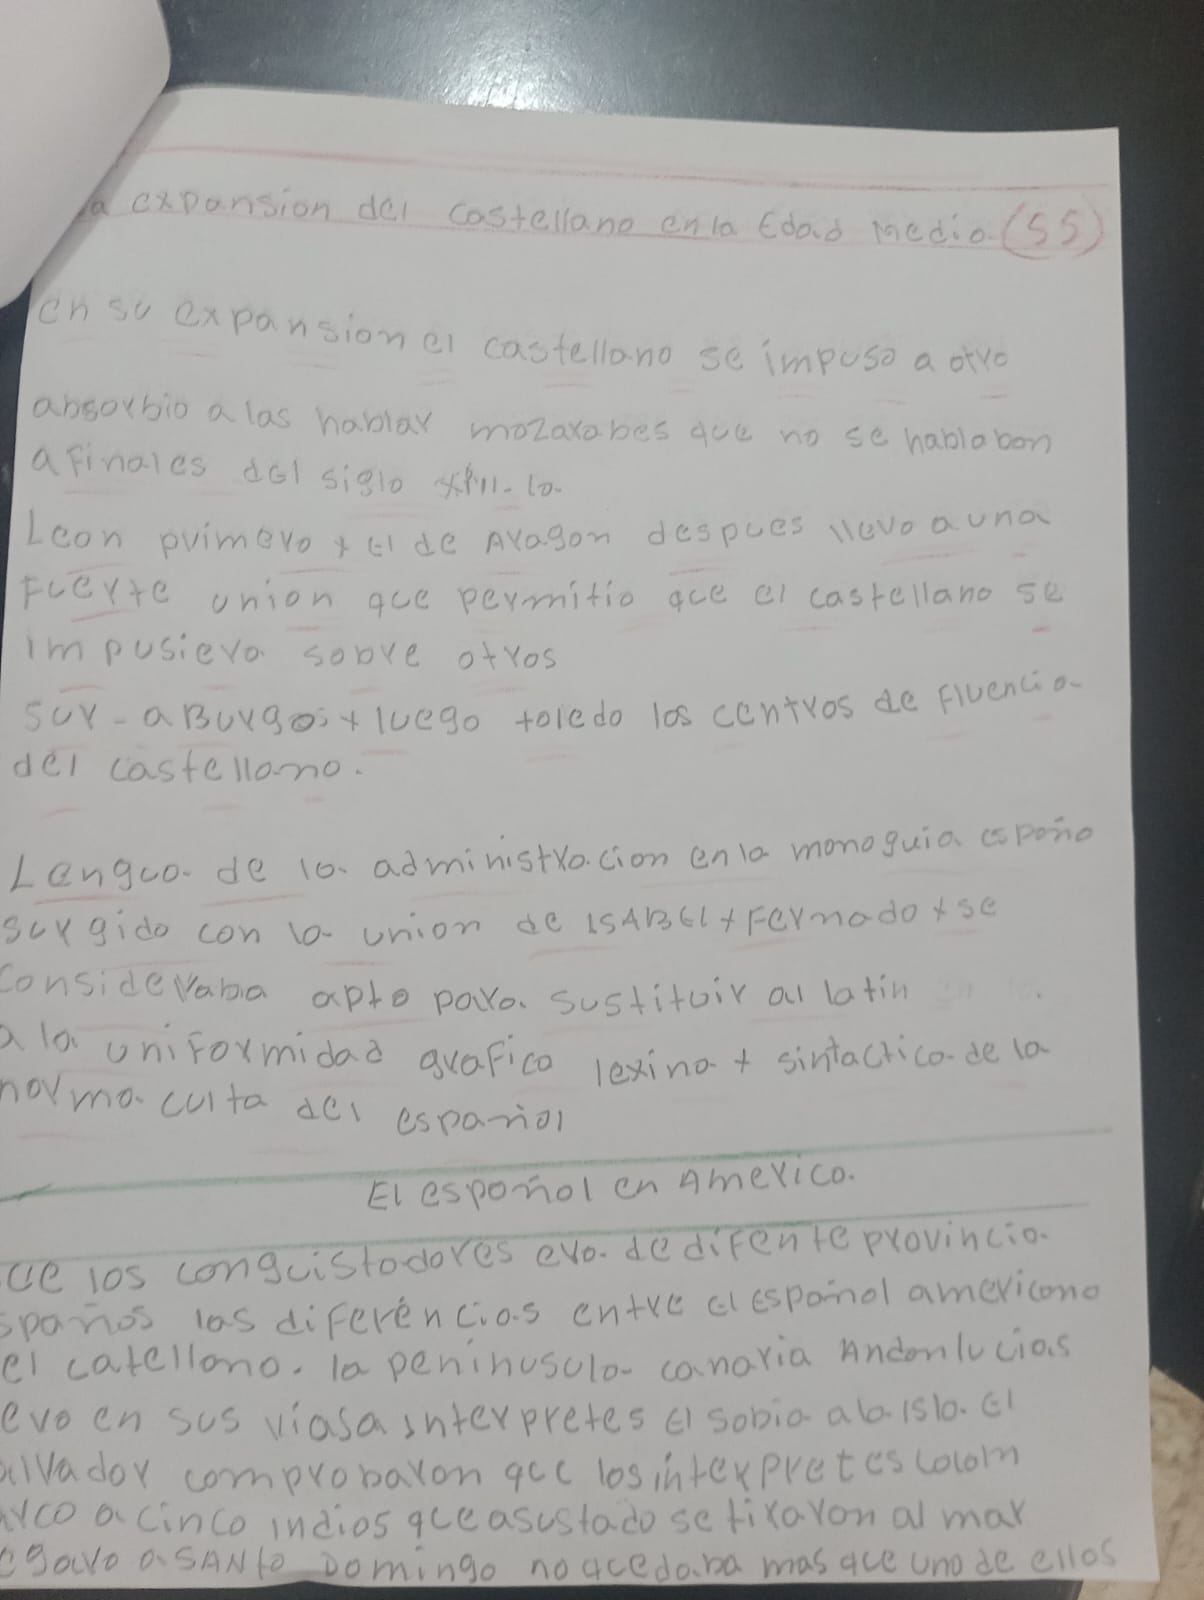 a expansion del castellano en la Edad Medio. (55)
en su expansion el castellano se impuso a otro
absorbio a las hablar mozarabes que no se hablabon
a finales del siglo XIII. lo.
Leon primero y el de Aragon despues llevo a una
Fuerte union que permitio que el castellano se
impusiera sobre otros
sur - a Burgos y luego toledo los centros de fluencia
del castellano.
Lengua de la administracion en la monoguia españo
surgido con la union de ISABEl y Fernado y se
Consideraba apto para sustituir al latin
a la uniformidad grafico lexina y sintactico de la
norma culta del español
El español en America.
ue los conquistadores era de difente provincia
spaños las diferéncias entre el Español americano
el catellano. la peninusula canaria Andonlucias
evo en sus viasa interpretes El sobia a la isla. El
alvador comprobaron que los interpretes colom
arco a cinco indios que asustado se tiraron al mar
egaro a SANto Domingo no quedaba mas que uno de ellos